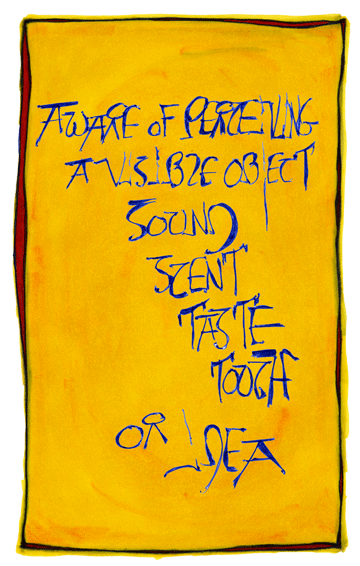 AWARE OF PERCEIVING
A VISIBLE OBJECT
SOUND
SCENT
TASTE
TOUCH
OR IDEA